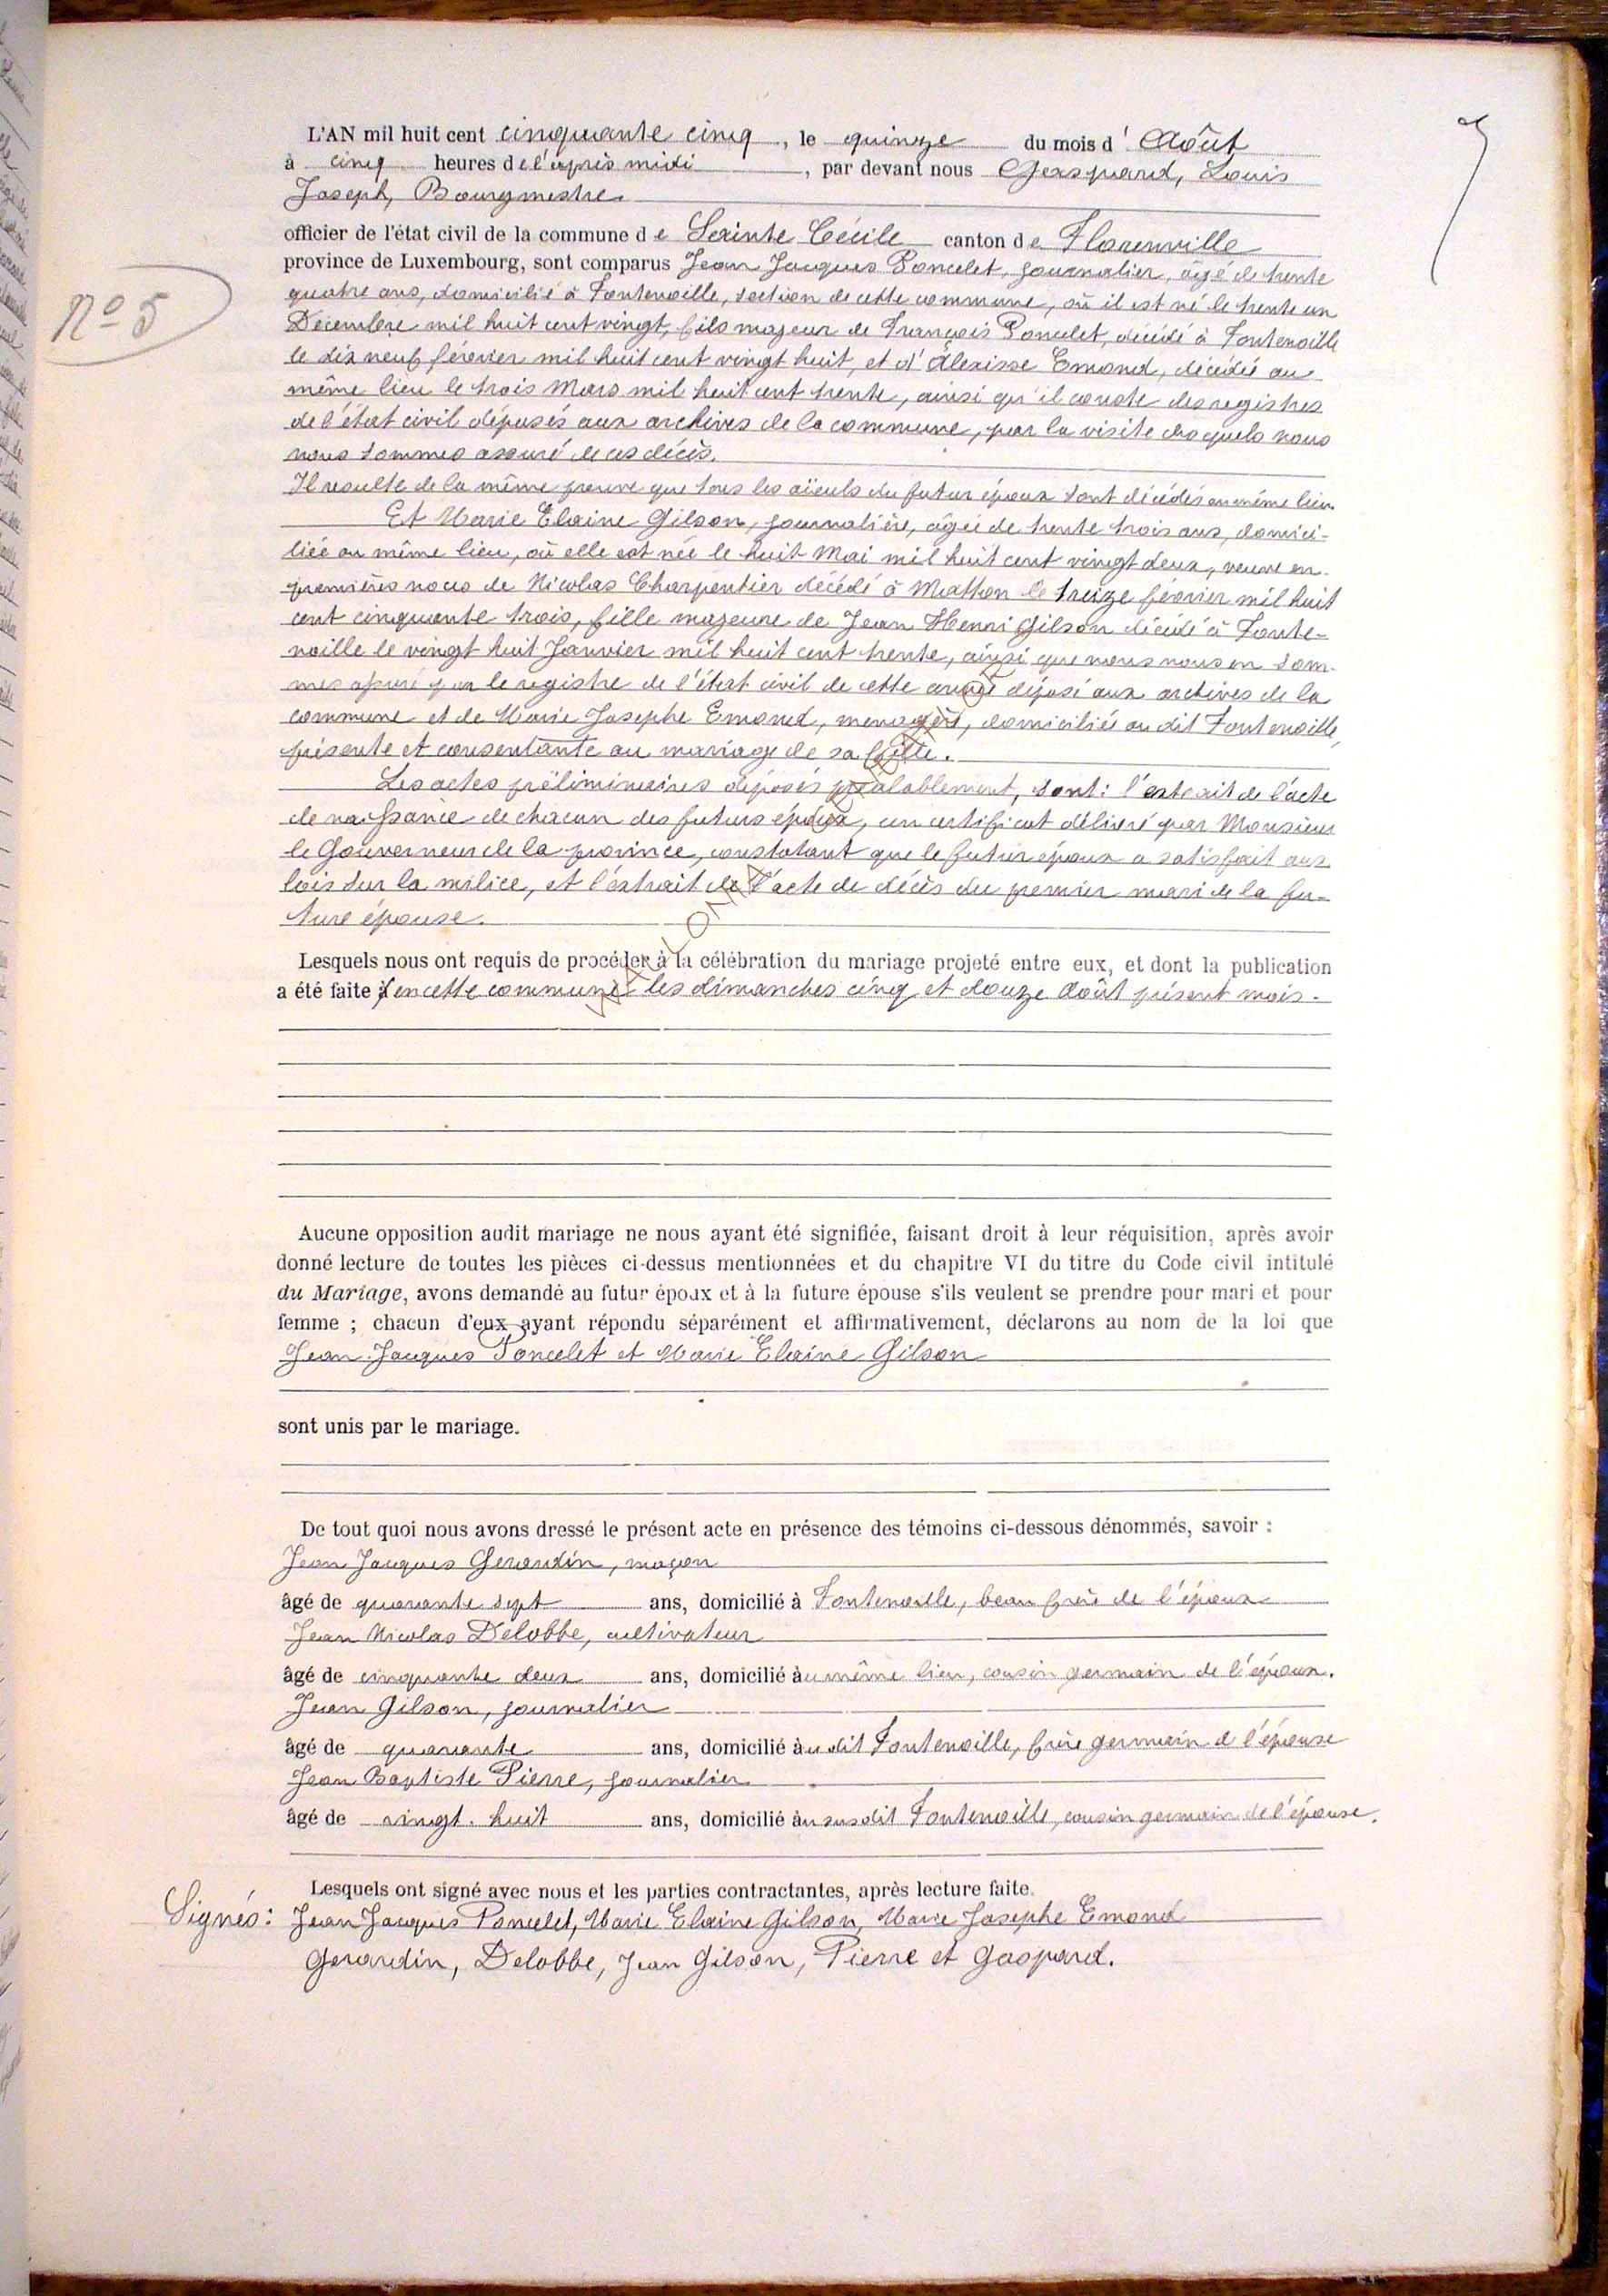 L'AN mil huit cent cinquante cinq, le quinze du mois d'Août
à cinq heures de l'après midi, par devant nous Gaspard, Louis
Joseph, Bourgmestre
officier de l'état civil de la commune de Sainte Cécile canton de Florenville
province de Luxembourg, sont comparus Jean Jacques Poncelet, journalier, âgé de trente
quatre ans, domicilié à Fontenoille, section de cette commune, où il est né le trente un
Décembre mil huit cent vingt, fils majeur de François Poncelet, décédé à Fontenoille
le dix neuf février mil huit cent vingt huit, et d'Alexisse Emond, décédée au
même lieu le trois Mars mil huit cent trente, ainsi qu'il conste des registres
de l'état civil déposés aux archives de la commune, par la visite desquels nous
nous sommes assuré de ces décès.
Il resulte de la même preuve que tous les aïeuls du futur époux sont décédés au même lieu
Et Marie Elaine Gilson, journalière, âgée de trente trois ans, domici-
liée au même lieu, où elle est née le huit Mai mil huit cent vingt deux, veuve en
premières noces de Nicolas Charpentier décédé à Matton le treize février mil huit
cent cinquante trois, fille majeure de Jean Henri Gilson décédé à Fonte-
noille le vingt huit Janvier mil huit cent trente, ainsi que nous nous en som-
mes assuré par le registre de l'état civil de cette année déposé aux archives de la
commune et de Marie Josephe Emond, menagère, domiciliée au dit Fontenoille,
présente et consentante au mariage de sa fille.
Les actes préliminaires déposés préalablement, sont: l'extrait de l'acte
de naissance de chacun des futurs époux, un certificat délivré par Monsieur
le Gouverneur de la province, constatant que le futur époux a satisfait aux
lois sur la milice, et l'extrait de l'acte de décès du premier mari de la fu-
ture épouse.
Lesquels nous ont requis de procéder à la célébration du mariage projeté entre eux, et dont la publication
a été faite à en cette commune les dimanches cinq et douze Août présent mois.
Aucune opposition audit mariage ne nous ayant été signifiée, faisant droit à leur réquisition, après avoir
donné lecture de toutes les pièces ci-dessus mentionnées et du chapitre VI du titre du Code civil intitulé
du Mariage, avons demandé au futur époux et à la future épouse s'ils veulent se prendre pour mari et pour
femme ; chacun d'eux ayant répondu séparément et affirmativement, déclarons au nom de la loi que
Jean Jacques Poncelet et Marie Elaine Gilson
sont unis par le mariage.
De tout quoi nous avons dressé le présent acte en présence des témoins ci-dessous dénommés, savoir :
Jean Jacques Gerardin, maçon
âgé de quarante sept ans, domicilié à Fontenoille, beau frère de l'époux
Jean Nicolas Delobbe, cultivateur
âgé de cinquante deux ans, domicilié au même lieu, cousin germain de l'époux.
Jean Gilson, journalier
âgé de quarante ans, domicilié au dit Fontenoille, frère germain de l'épouse
Jean Baptiste Pierre, journalier
âgé de vingt. huit ans, domicilié au susdit Fontenoille, cousin germain de l'épouse.
Lesquels ont signé avec nous et les parties contractantes, après lecture faite.
Signés: Jean Jacques Poncelet, Marie Elaine Gilson, Marie Josephe Emond
Gerardin, Delobbe, Jean Gilson, Pierre et Gaspard.
No 5